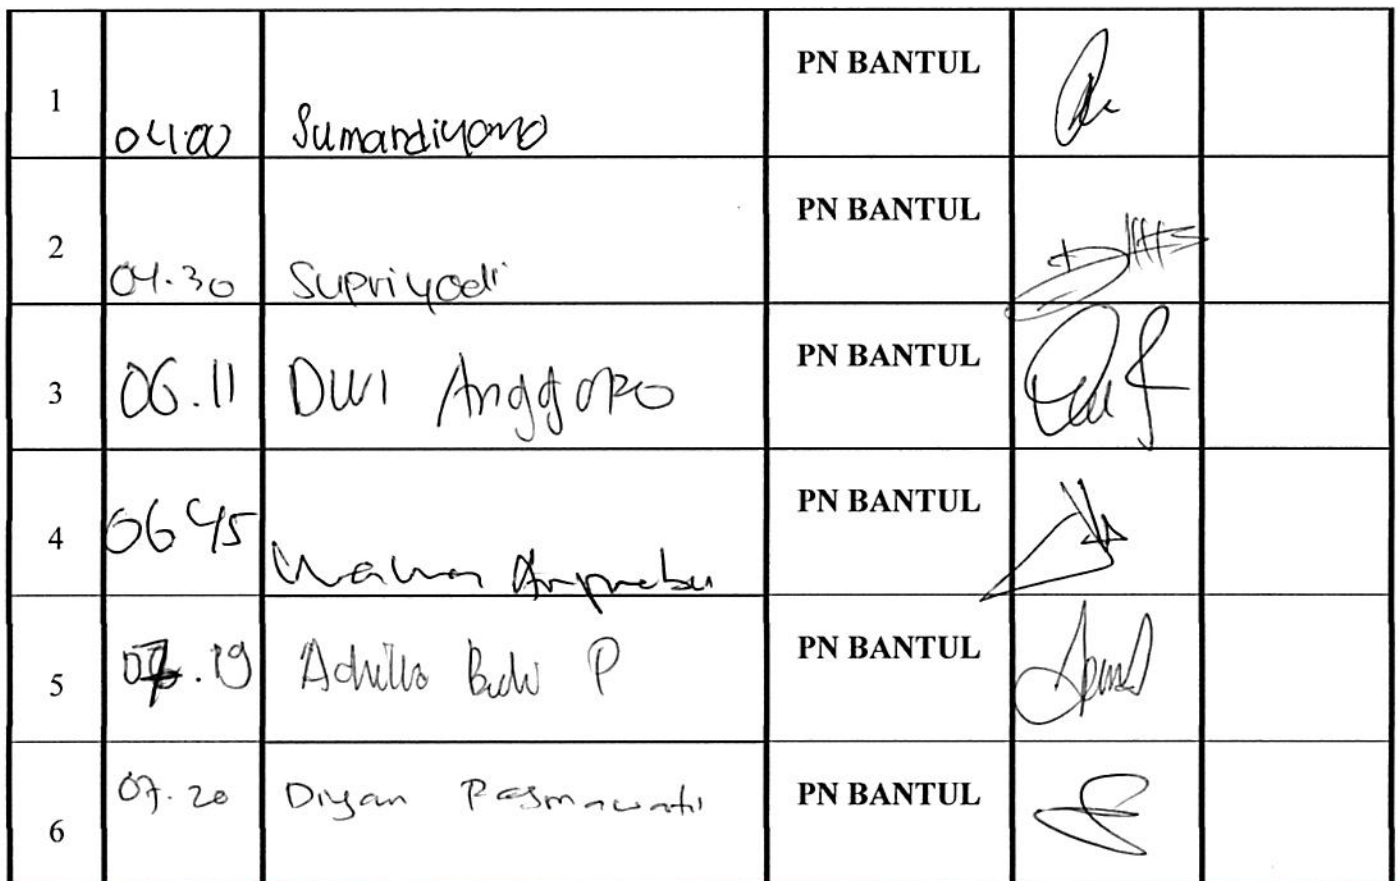 1 04.00 Sumardiyono PN BANTUL
2 04.30 Supriyadi PN BANTUL
3 06.11 DWI Anggoro PN BANTUL
4 06 45 PN BANTUL
5 07.19 P PN BANTUL
6 07.20 Diyan PN BANTUL